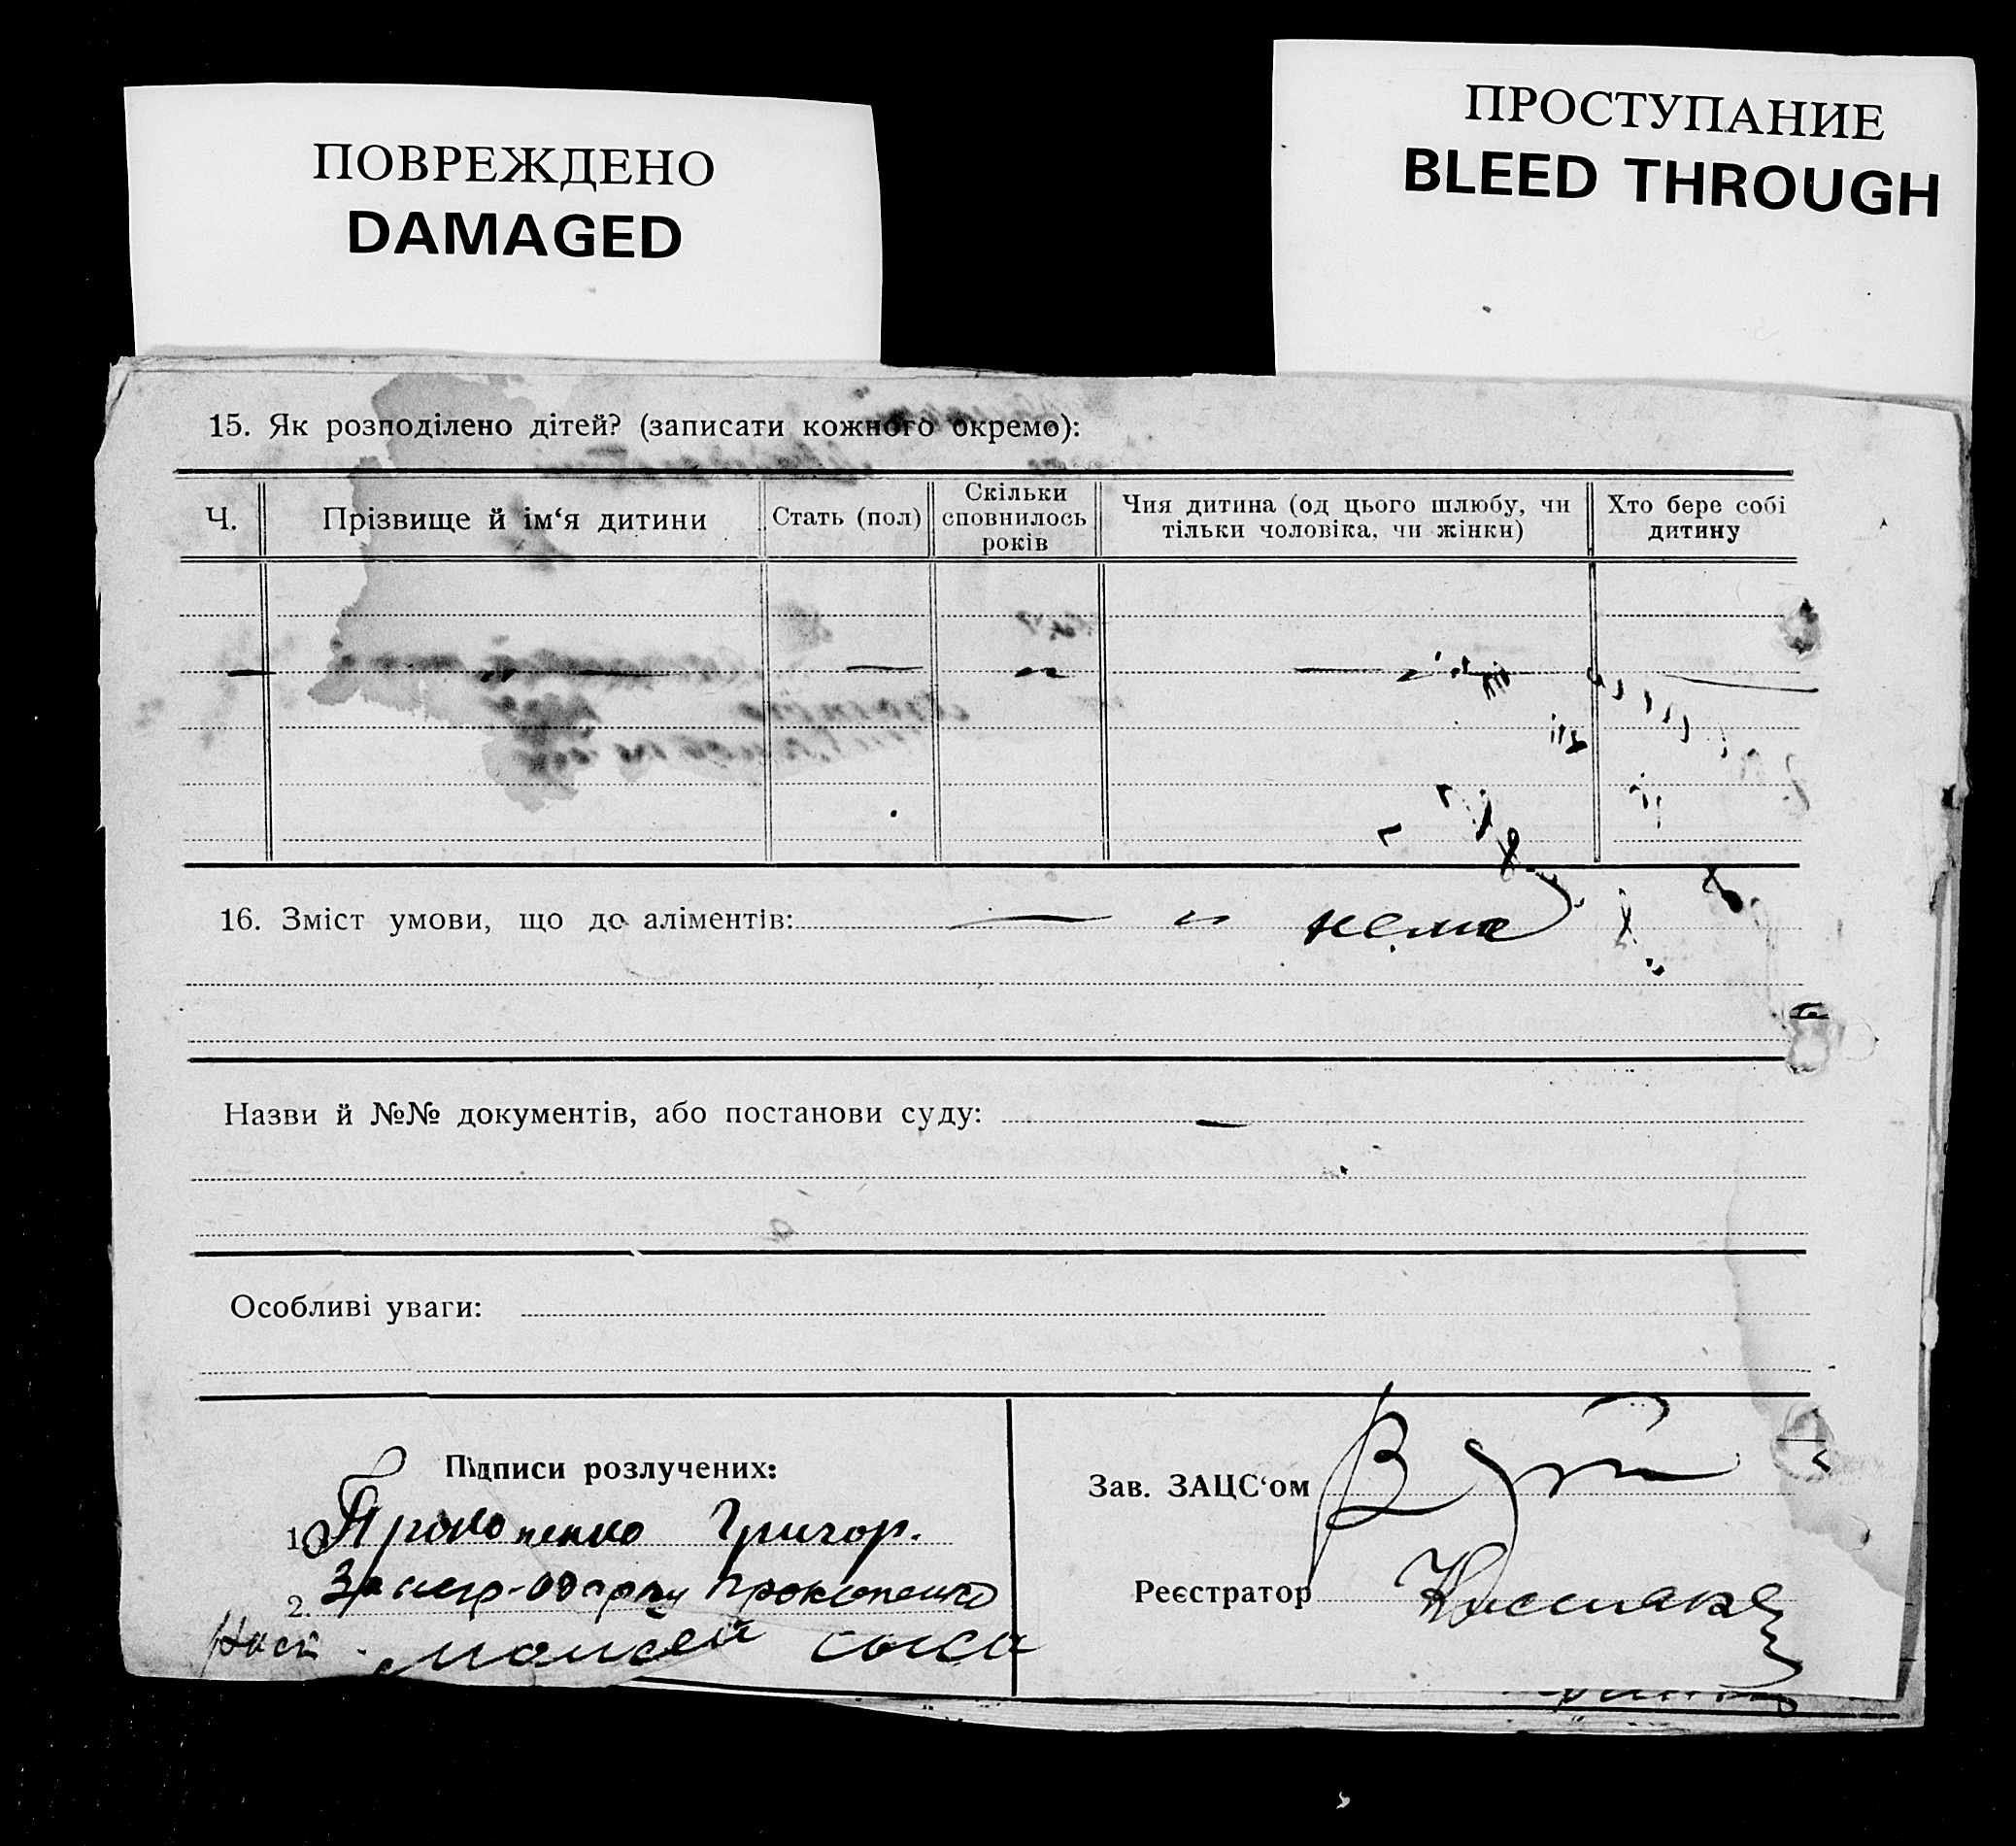 ПОВРЕЖДЕНО
DAMAGED
ПРОСТУПАНИЕ
BLEED THROUGH
15. Як розподілено дітей? (записати кожного окремо):
Ч. Прізвище й ім‘я дитини Стать (пол) Скільки сповнилось років Чия дитина (од цього шлюбу, чи тільки чоловіка, чи жінки) Хто бере собі дитину
16. Зміст умови, що до аліментів: — „ нема
Назви й №№ документів, або постанови суду: —
Особливі уваги:
Підписи розлучених:
1. Прокопенко Григор.
2. Прокопенко
Зав. ЗАЦС‘ом
Реєстратор